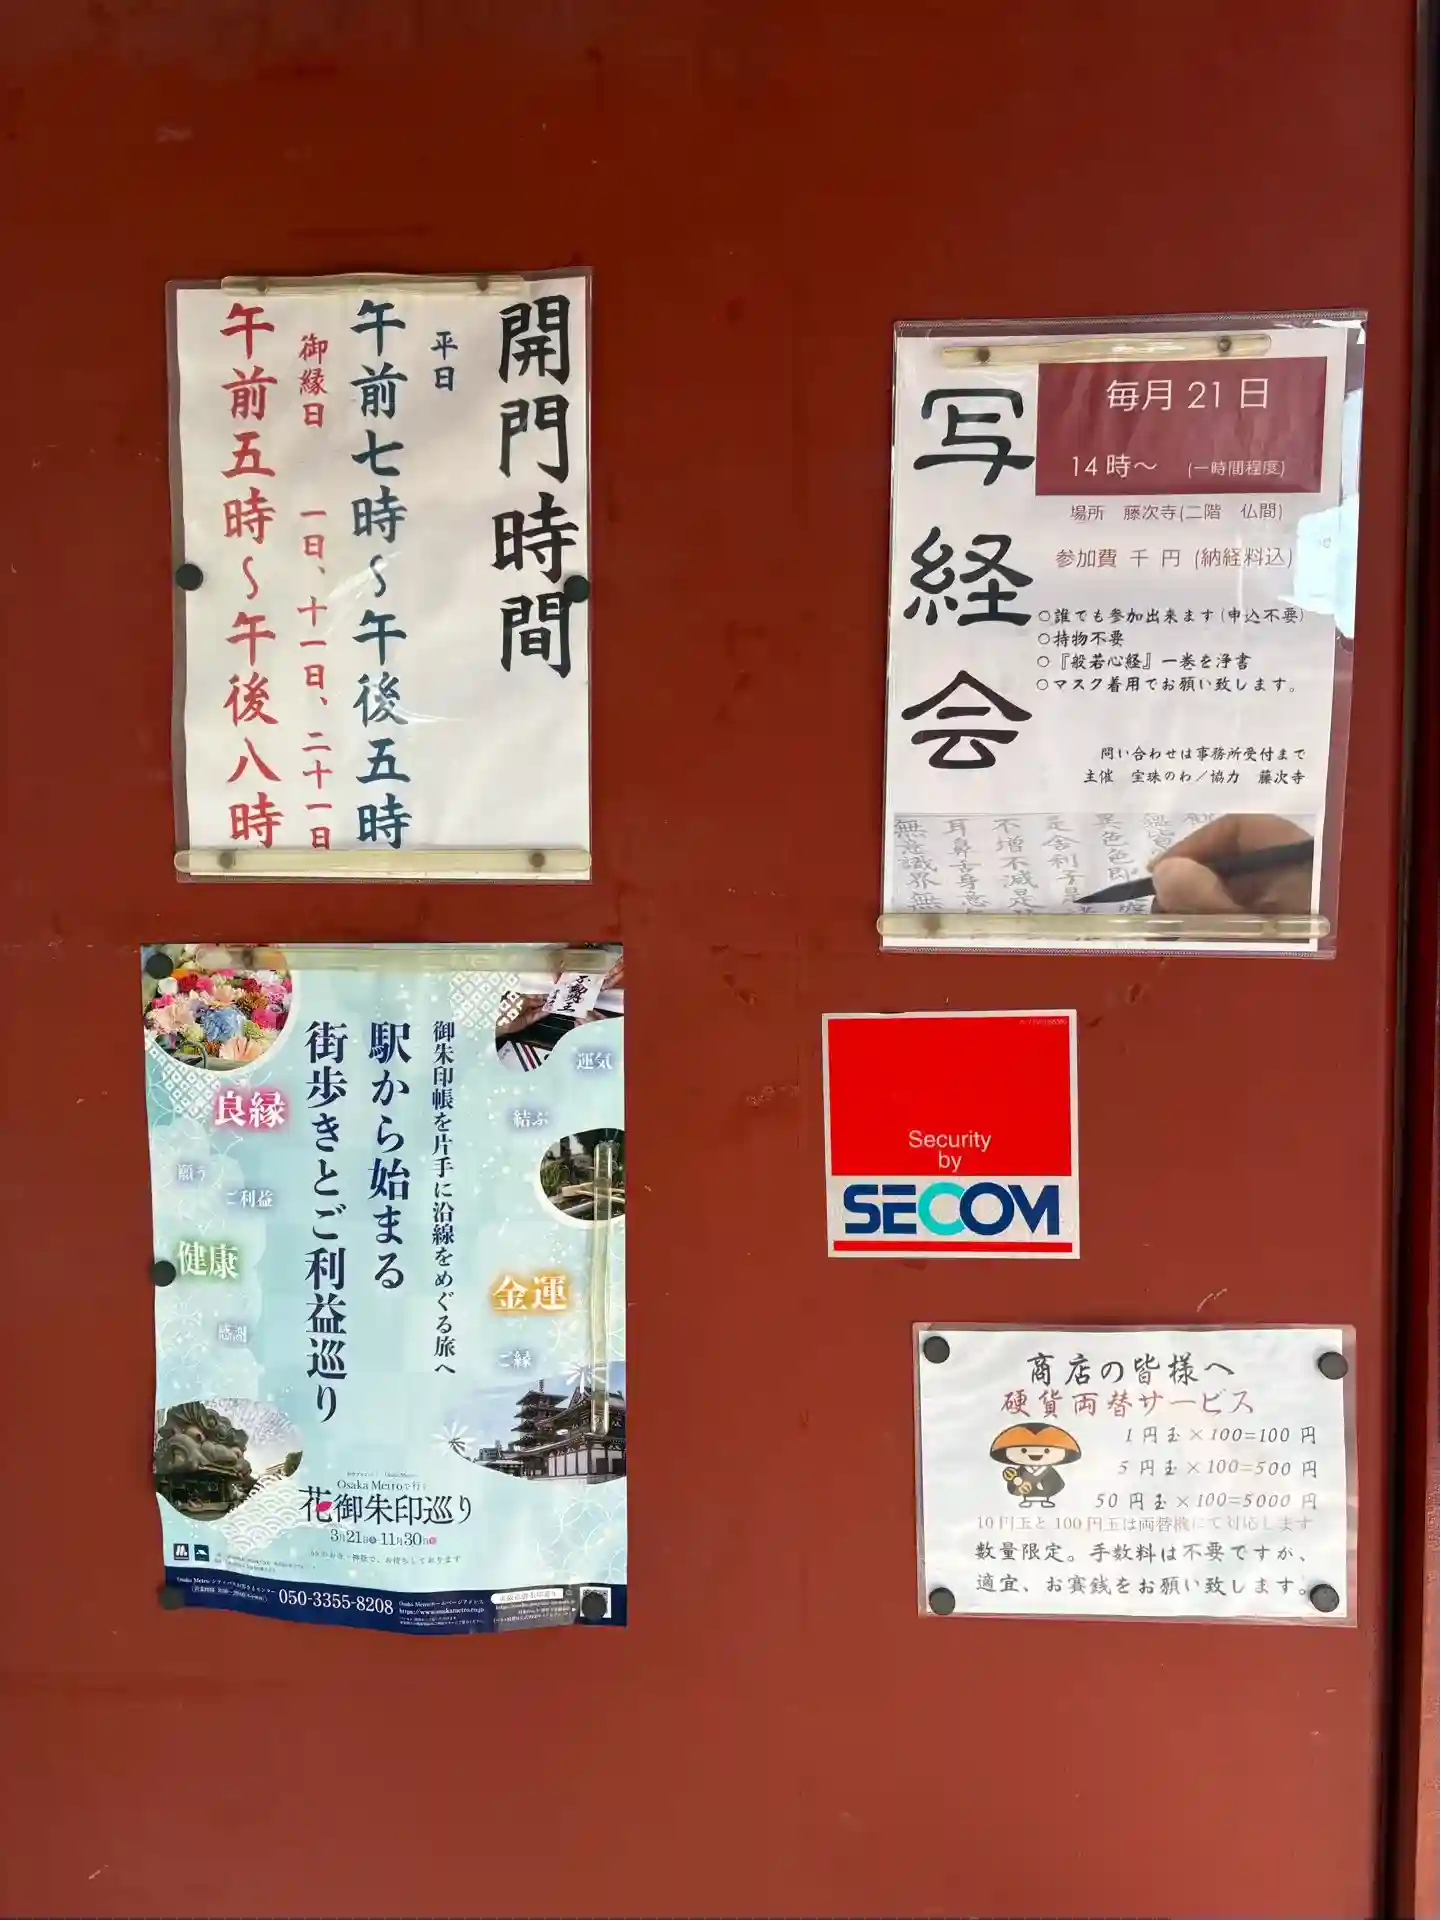 開門時間
平日
午前七時～午後五時
御縁日　一日、十一日、二十一日
午前五時～午後八時
写経会
毎月 21 日
14 時～　(一時間程度)
場所　藤次寺(二階　仏間)
参加費 千 円 (納経料込)
○誰でも参加出来ます(申込不要)
○持物不要
○『般若心経』一巻を浄書
○マスク着用でお願い致します。
問い合わせは事務所受付まで
主催　宝珠のわ／協力　藤次寺
御朱印帳を片手に沿線をめぐる旅へ
駅から始まる
街歩きとご利益巡り
運気
結ぶ
良縁
願う
ご利益
健康
感謝
金運
ご縁
Osaka Metroで行く
花御朱印巡り
3月21日 11月30日
050-3355-8208
Osaka Metroホームページアドレス
Security
by
SECOM
商店の皆様へ
硬貨両替サービス
1 円玉×100=100 円
5 円玉×100=500 円
50 円玉×100=5000 円
10円玉と100円玉は両替機にて対応します
数量限定。手数料は不要ですが、
適宜、お賽銭をお願い致します。